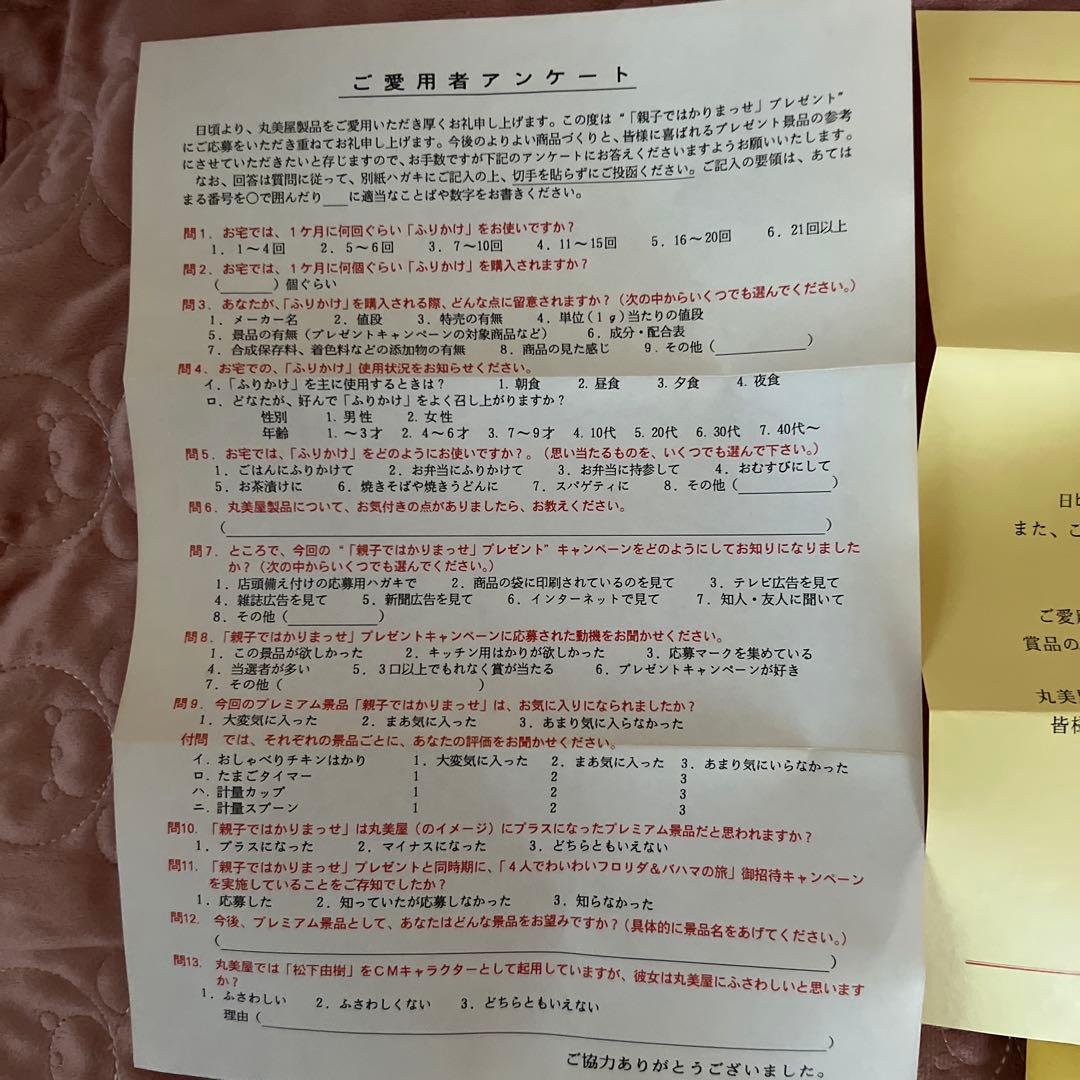 ご愛用者アンケート
日頃より、丸美屋製品をご愛用いただき厚くお礼申し上げます。この度は“「親子ではかりまっせ」プレゼント”
にご応募をいただき重ねてお礼申し上げます。今後のよりよい商品づくりと、皆様に喜ばれるプレゼント景品の参考
にさせていただきたいと存じますので、お手数ですが下記のアンケートにお答えくださいますようお願いいたします。
なお、回答は質問に従って、別紙ハガキにご記入の上、切手を貼らずにご投函ください。ご記入の要領は、あては
まる番号を〇で囲んだり___に適当なことばや数字をお書きください。
問1. お宅では、1ケ月に何回ぐらい「ふりかけ」をお使いですか？
1. 1～4回 2. 5～6回 3. 7～10回 4. 11～15回 5. 16～20回 6. 21回以上
問2. お宅では、1ケ月に何個ぐらい「ふりかけ」を購入されますか？
(______) 個ぐらい
問3. あなたが、「ふりかけ」を購入される際、どんな点に留意されますか？(次の中からいくつでも選んでください。)
1. メーカー名 2. 値段 3. 特売の有無 4. 単位(1g)当たりの値段
5. 景品の有無(プレゼントキャンペーンの対象商品など) 6. 成分・配合表
7. 合成保存料、着色料などの添加物の有無 8. 商品の見た感じ 9. その他(__________)
問4. お宅での、「ふりかけ」使用状況をお知らせください。
イ. 「ふりかけ」を主に使用するときは？ 1. 朝食 2. 昼食 3. 夕食 4. 夜食
ロ. どなたが、好んで「ふりかけ」をよく召し上がりますか？
性別 1. 男性 2. 女性
年齢 1. ～3才 2. 4～6才 3. 7～9才 4. 10代 5. 20代 6. 30代 7. 40代～
問5. お宅では、「ふりかけ」をどのようにお使いですか？。(思い当たるものを、いくつでも選んで下さい。)
1. ごはんにふりかけて 2. お弁当にふりかけて 3. お弁当に持参して 4. おむすびにして
5. お茶漬けに 6. 焼きそばや焼きうどんに 7. スパゲティに 8. その他(__________)
問6. 丸美屋製品について、お気付きの点がありましたら、お教えください。
(____________________)
問7. ところで、今回の“「親子ではかりまっせ」プレゼント”キャンペーンをどのようにしてお知りになりました
か？(次の中からいくつでも選んでください。)
1. 店頭備え付けの応募用ハガキで 2. 商品の袋に印刷されているのを見て 3. テレビ広告を見て
4. 雑誌広告を見て 5. 新聞広告を見て 6. インターネットで見て 7. 知人・友人に聞いて
8. その他(__________)
問8. 「親子ではかりまっせ」プレゼントキャンペーンに応募された動機をお聞かせください。
1. この景品が欲しかった 2. キッチン用はかりが欲しかった 3. 応募マークを集めている
4. 当選者が多い 5. 3口以上でもれなく賞が当たる 6. プレゼントキャンペーンが好き
7. その他( )
問9. 今回のプレミアム景品「親子ではかりまっせ」は、お気に入りになられましたか？
1. 大変気に入った 2. まあ気に入った 3. あまり気に入らなかった
付問 では、それぞれの景品ごとに、あなたの評価をお聞かせください。
イ. おしゃべりチキンはかり 1. 大変気に入った 2. まあ気に入った 3. あまり気にいらなかった
ロ. たまごタイマー 1 2 3
ハ. 計量カップ 1 2 3
ニ. 計量スプーン 1 2 3
問10. 「親子ではかりまっせ」は丸美屋(のイメージ)にプラスになったプレミアム景品だと思われますか？
1. プラスになった 2. マイナスになった 3. どちらともいえない
問11. 「親子ではかりまっせ」プレゼントと同時期に、「4人でわいわいフロリダ&バハマの旅」御招待キャンペーン
を実施していることをご存知でしたか？
1. 応募した 2. 知っていたが応募しなかった 3. 知らなかった
問12. 今後、プレミアム景品として、あなたはどんな景品をお望みですか？(具体的に景品名をあげてください。)
(____________________)
問13. 丸美屋では「松下由樹」をCMキャラクターとして起用していますが、彼女は丸美屋にふさわしいと思います
か？
1. ふさわしい 2. ふさわしくない 3. どちらともいえない
理由(____________________)
ご協力ありがとうございました。
日頃
また、こ
ご愛顧
賞品の
丸美
皆様